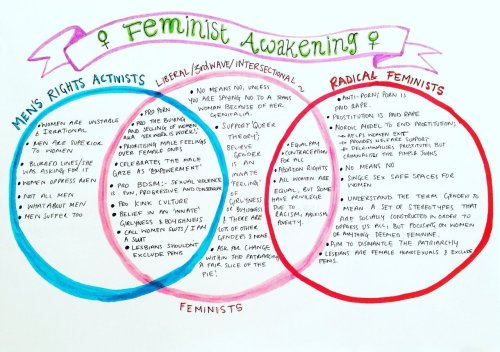 ♀ Feminist Awakening ♀
MEN'S RIGHTS ACTIVISTS
• WOMEN ARE UNSTABLE
& IRRATIONAL
• MEN ARE SUPERIOR
TO WOMEN
• BLURRED LINES/SHE
WAS ASKING FOR IT
• WOMEN OPPRESS MEN
• NOT ALL MEN
• WHAT ABOUT MEN
• MEN SUFFER TOO
LIBERAL/3rd WAVE/INTERSECTIONAL
• PRO PORN
• PRO THE BUYING
AND SELLING OF WOMEN
AKA 'SEX WORK IS WORK';
• PRIORITISING MALE FEELINGS
OVER FEMALE ONES
• CELEBRATES THE MALE
GAZE AS 'EMPOWERMENT'
• PRO BDSM:- SEXUAL VIOLENCE
IS FUN, PROGRESSIVE AND CONSENSUAL
• PRO KINK CULTURE
• BELIEF IN AN 'INNATE'
GIRLYNESS & BOYISHNESS
• CALL WOMEN SLUTS / I AM
A SLUT
• LESBIANS SHOULDNT
EXCLUDE PENIS
• NO MEANS NO, UNLESS
YOU ARE SAYING NO TO A TRANS
WOMAN BECAUSE OF HER
GENITALIA.
• SUPPORT 'QUEER
THEORY';
BELIEVE
GENDER
IS AN
INNATE
'FEELING'
OF
GIRLYNESS
OR BOYISHNESS
& THERE ARE
LOTS OF OTHER
GENDERS
• ASK FOR CHANGE
WITHIN THE PATRIARCHY
A FAIR SLICE OF THE
PIE!
FEMINISTS
• EQUAL PAY
• CONTRACEPTION
FOR ALL
• ABORTION RIGHTS
• ALL WOMEN ARE
EQUAL, BUT SOME
HAVE PRIVILEGE
DUE TO
RACISM, ABLEISM,
POVERTY.
RADICAL FEMINISTS
• ANTI-PORN; PORN IS
PAID RAPE.
• PROSTITUTION IS PAID RAPE
• NORDIC MODEL TO END PROSTITUTION;
→ HELPS WOMEN EXIT
→ PROVIDES WELFARE SUPPORT
→ DECRIMINALISES PROSTITUTES, BUT
CRIMINALISES THE PIMPS & JOHNS
• NO MEANS NO
• SINGLE SEX SAFE SPACES FOR
WOMEN
• UNDERSTAND THE TERM GENDER TO
MEAN A SET OF STEREOTYPES THAT
ARE SOCIALLY CONSTRUCTED IN ORDER TO
OPPRESS US ALL; BUT FOCUSING ON WOMEN
OR ANYTHING DEEMED FEMININE.
• AIM TO DISMANTLE THE PATRIARCHY
• LESBIANS ARE FEMALE HOMOSEXUALS & EXCLUDE
PENIS.